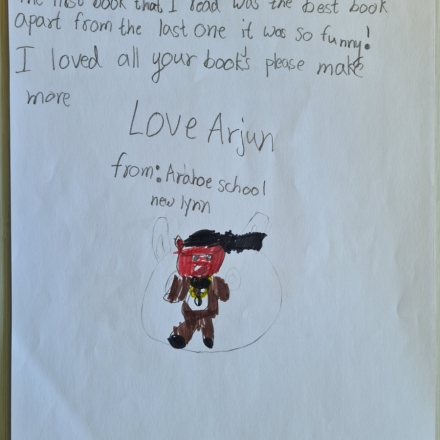 The first book that I read was the best book
apart from the last one it was so funny!
I loved all your book's please make
more
Love Arjun
from: Arahoe school
new lynn